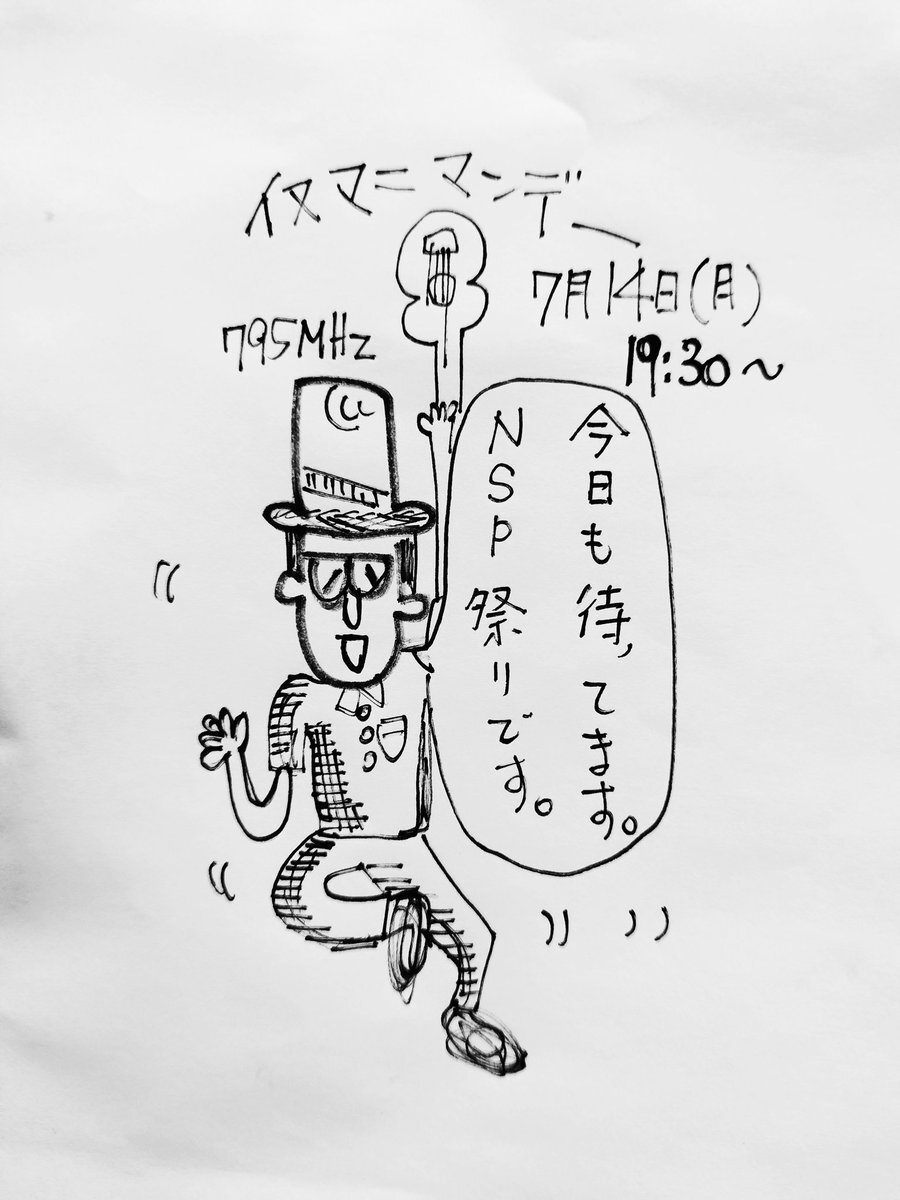 イヌマニマンデー
7月14日(月)
19:30～
795MHz
今日も待ってます。
NSP祭りです。